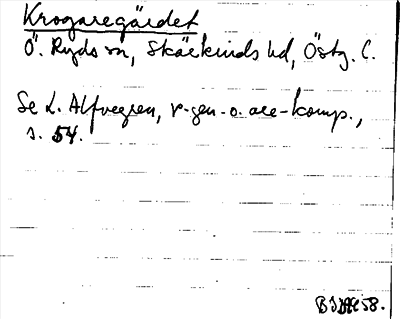 Krogaregärdet
Ö. Ryds sn, Skärkinds hd, Östg. l.
Se L. Alfvegren, r-gen. o. are-komp.,
s. 54.
58.